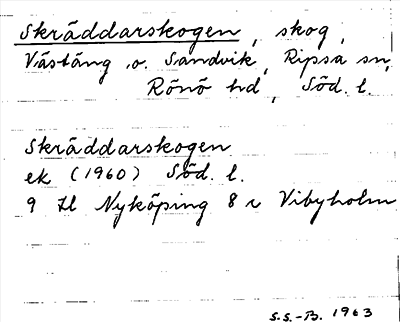 Skräddarskogen, skog,
Västäng o. Sandvik, Ripsa sn,
Rönö hd, Söd. l.
Skräddarskogen
ek (1960) Söd. l.
9 H Nyköping 8 c Vibyholm
S.S.-B. 1963